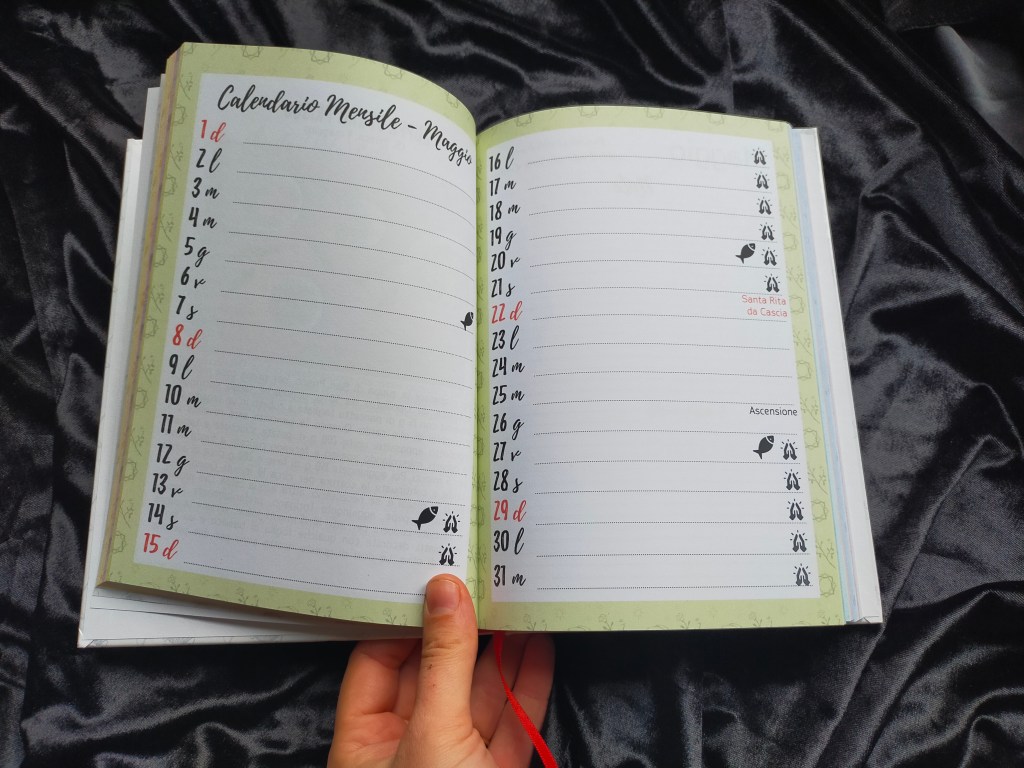 Calendario Mensile - Maggio
1 d
2 l
3 m
4 m
5 g
6 v
7 s
8 d
9 l
10 m
11 m
12 g
13 v
14 s
15 d
16 l
17 m
18 m
19 g
20 v
21 s
22 d Santa Rita
da Cascia
23 l
24 m
25 m
26 g Ascensione
27 v
28 s
29 d
30 l
31 m